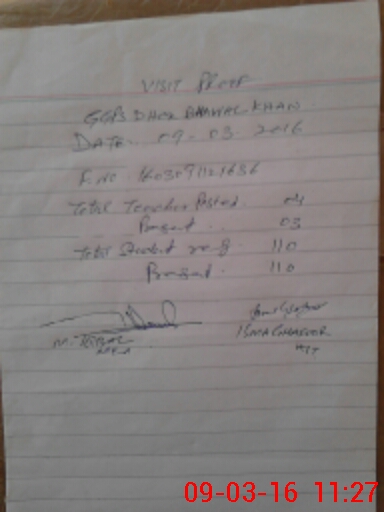 VISIT Proof
GGPS DHOK BANWAL KHAN
DATE. 09-03-2016
F.No.
Total Teacher Posted. 04
Present.. 03
Total Student reg. 110
Present. 110
M. IQBAL
MEA
ISMA GHAFOOR
09-03-16 11:27